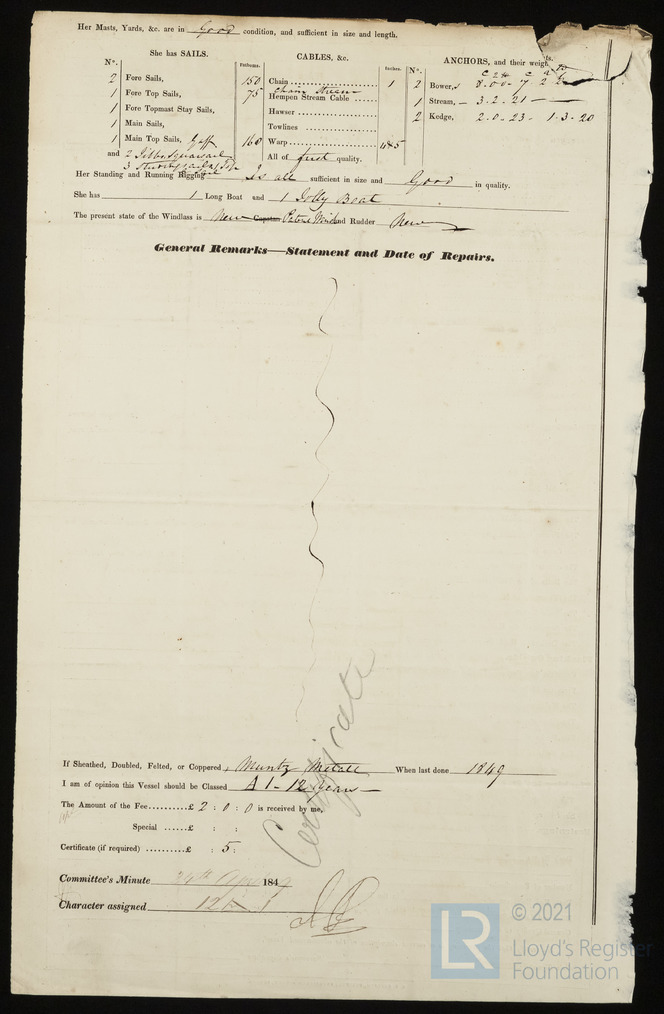 Her Masts, Yards, &c. are in Good condition, and sufficient in size and length.
She has SAILS. CABLES, &c. ANCHORS, and their weights.
N°. Fathoms. Inches. N°.
2 Fore Sails, 150 Chain 1 2 Bower,
1 Fore Top Sails, 75 Chain Stream Hempen Stream Cable 1 Stream, 3.2.21
1 Fore Topmast Stay Sails, Hawser 2 Kedge, 2.0.23 - 1.3.20
1 Main Sails, Towlines
1 Main Top Sails, Gaff 160 Warp
and 2 All of first quality.
Her Standing and Running Rigging Is all sufficient in size and Good in quality.
She has 1 Long Boat and 1 Jolly Boat
The present state of the Windlass is New Capstan and Rudder New
General Remarks—Statement and Date of Repairs.
If Sheathed, Doubled, Felted, or Coppered, Muntz Metall When last done 1849
I am of opinion this Vessel should be Classed A 1 - 12 Years
The Amount of the Fee.........£ 2 : 0 : 0 is received by me,
Special ......£ : :
Certificate (if required) ..........£ : 5 :
Certificate
Committee's Minute 24th April 1849
Character assigned 12 A 1
LR © 2021
Lloyd's Register
Foundation